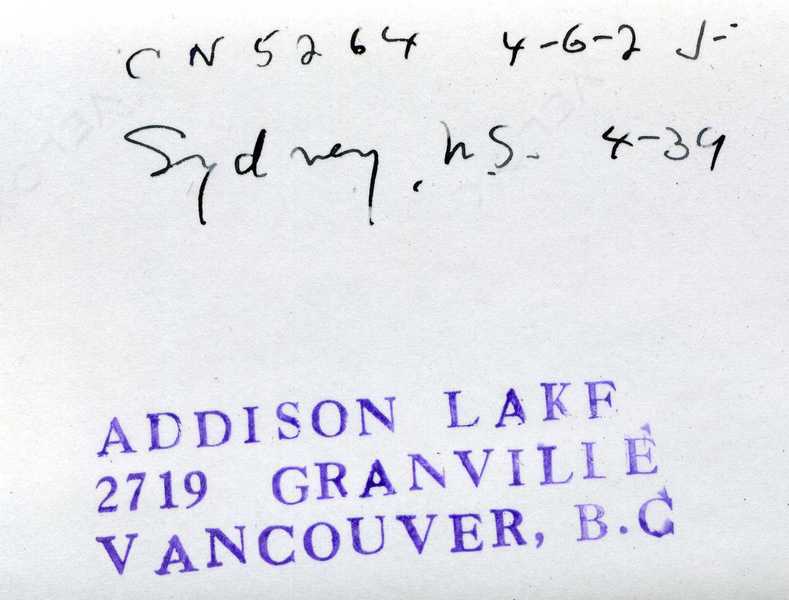 CN 5264 4-6-2 J-
Sydney, N.S. 4-39
ADDISON LAKE
2719 GRANVILLE
VANCOUVER, B.C